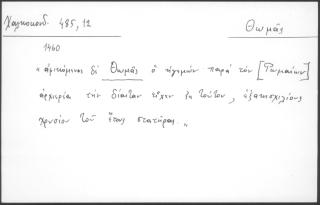 Χαλκοκονδ. 485,12
Θωμᾶς
1460
" ἀφικόμενος δὲ Θωμᾶς ὁ ἡγεμὼν παρὰ τὸν [Ῥωμαίων]
ἀρχιερέα τήν δίαιταν εἶχεν ἐν τούτου, ἑξακισχιλίους
χρυσίου τοῦ ἔτους στατῆρας "